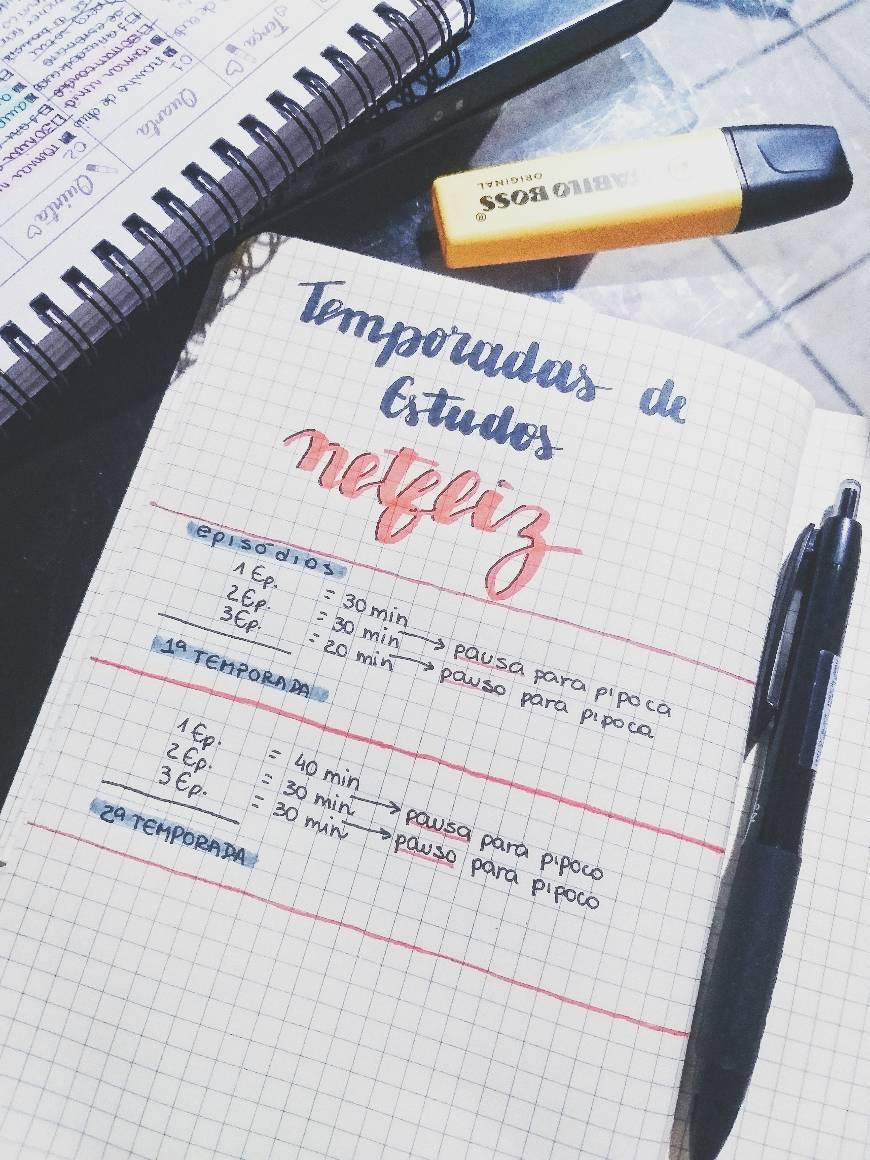 Terça
Quarta
Quinta
STABILO BOSS
ORIGINAL
Temporadas de
Estudos
netfliz
episódios
1 Ep. = 30 min
2 Ep. = 30 min → pausa para pipoca
3 Ep. = 20 min → pausa para pipoca
1ª TEMPORADA
1 Ep. = 40 min
2 Ep. = 30 min → pausa para pipoca
3 Ep. = 30 min → pausa para pipoca
2ª TEMPORADA